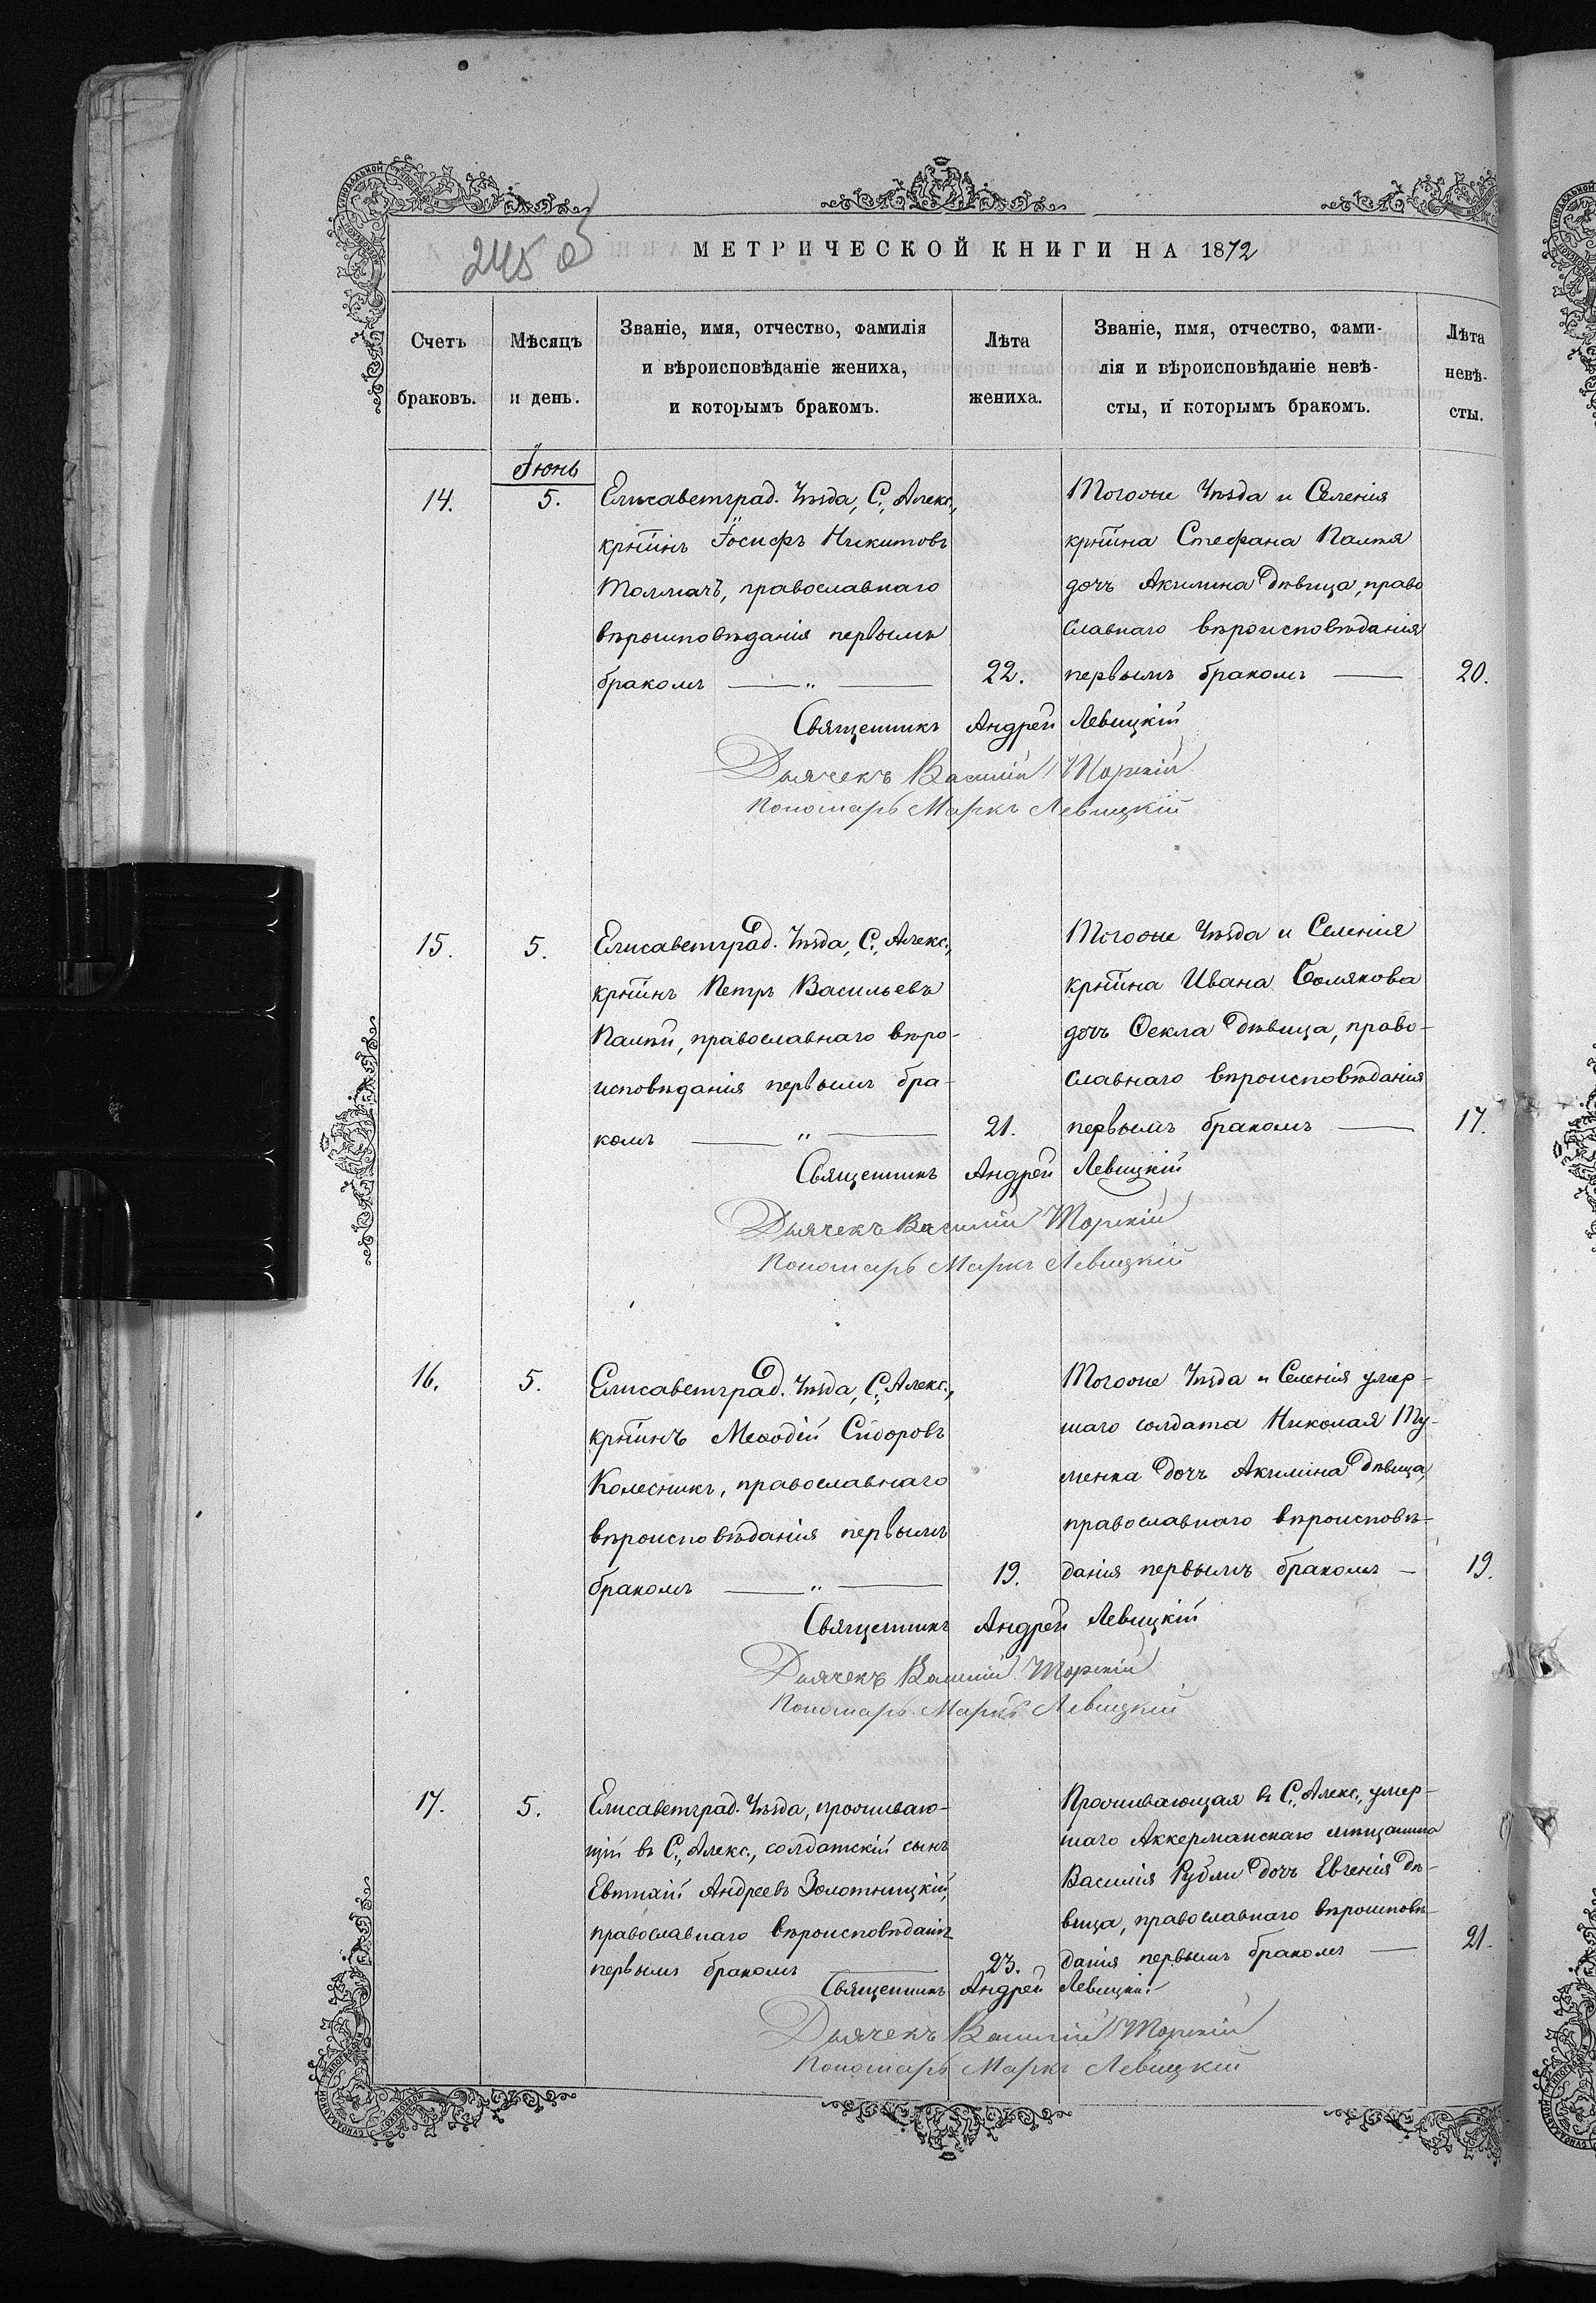 245 об
МЕТРИЧЕСКОЙ КНИГИ НА 1872
Счетъ браковъ.
Мѣсяцъ и день.
Званіе, имя, отчество, фамилія
и вѣроисповѣданіе жениха,
и которымъ бракомъ.
Лѣта жениха.
Званіе, имя, отчество, фами-
лія и вѣроисповѣданіе невѣ-
сты, и которымъ бракомъ.
Лѣта
невѣ-
сты.
Іюнь
14.
5.
Елисаветград. Уѣзда, С., Алекс.,
крт̃инъ Іосифъ Никитовъ
Толмачъ, православнаго
вѣроисповѣданія первымъ
бракомъ — „ —
22.
Тогоже Уѣзда и Селенія
крт̃ина Стефана Палтя
дочь Акилина дѣвица, право
славнаго вѣроисповѣданія
первымъ бракомъ —
20.
Священникъ Андрей Левицкій
Дьячекъ Василій Торскій
Пономарь Маркъ Левицкій
15.
5.
Елисаветград. Уѣзда, С., Алекс.,
крт̃инъ Петръ Васильевъ
Палтѣй, православнаго вѣро-
исповѣданія первымъ бра-
комъ — „ —
21.
Тогоже Уѣзда и Селенія
крт̃ина Ивана Болякова
дочь Ѳекла дѣвица, право-
славнаго вѣроисповѣданія
первымъ бракомъ —
17.
Священникъ Андрей Левицкій
Дьячекъ Василій Торскій
Пономарь Маркъ Левицкій
16.
5.
Елисаветград. Уѣзда, С., Алекс.,
крт̃инъ Меѳодій Сидоровъ
Колесникъ, православнаго
вѣроисповѣданія первымъ
бракомъ — „ —
19.
Тогоже Уѣзда и Селенія умер-
шаго солдата Николая Ту-
менка дочь Акилина дѣвица,
православнаго вѣроисповѣ-
данія первымъ бракомъ —
19.
Священникъ Андрей Левицкій
Дьячекъ Василій Торскій
Пономарь Маркъ Левицкій
17.
5.
Елисаветград. Уѣзда, проживаю-
щій въ С., Алекс., солдатскій сынъ
Евтихій Андреевъ Золотницкій,
православнаго вѣроисповѣданія
первымъ бракомъ —
23.
Проживающая въ С., Алекс., умер-
шаго Аккерманскаго мѣщанина
Василія Рубли дочь Евгенія дѣ-
вица, православнаго вѣроисповѣ-
данія первымъ бракомъ —
21.
Священникъ Андрей Левицкій
Дьячекъ Василій Торскій
Пономарь Маркъ Левицкій